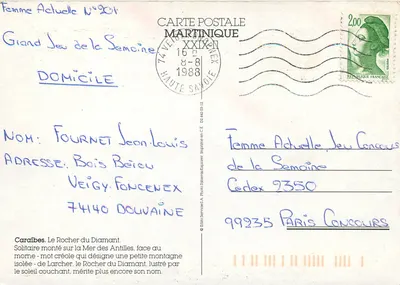 Femme Actuelle N°201
Grand Jeu de la Semaine
DOMICILE
NOM: FOURNET Jean-Louis
ADRESSE: Bois Beieu
VEIGY FONCENEX
74140 DOUVAINE
Caraïbes. Le Rocher du Diamant.
Solitaire monté sur la Mer des Antilles, face au
morne - mot créole qui désigne une petite montagne
isolée - de Larcher, le Rocher du Diamant, lustré par
le soleil couchant, mérite plus encore son nom.
CARTE POSTALE
MARTINIQUE
XXIX-11
74 VEIGY FONCENEX
16 H
8-8
1988
HAUTE SAVOIE
2,00
REPUBLIQUE FRANCAISE
Femme Actuelle, Jeu Concours
de la Semaine
Cedex 2350
99235 PARIS CONCOURS